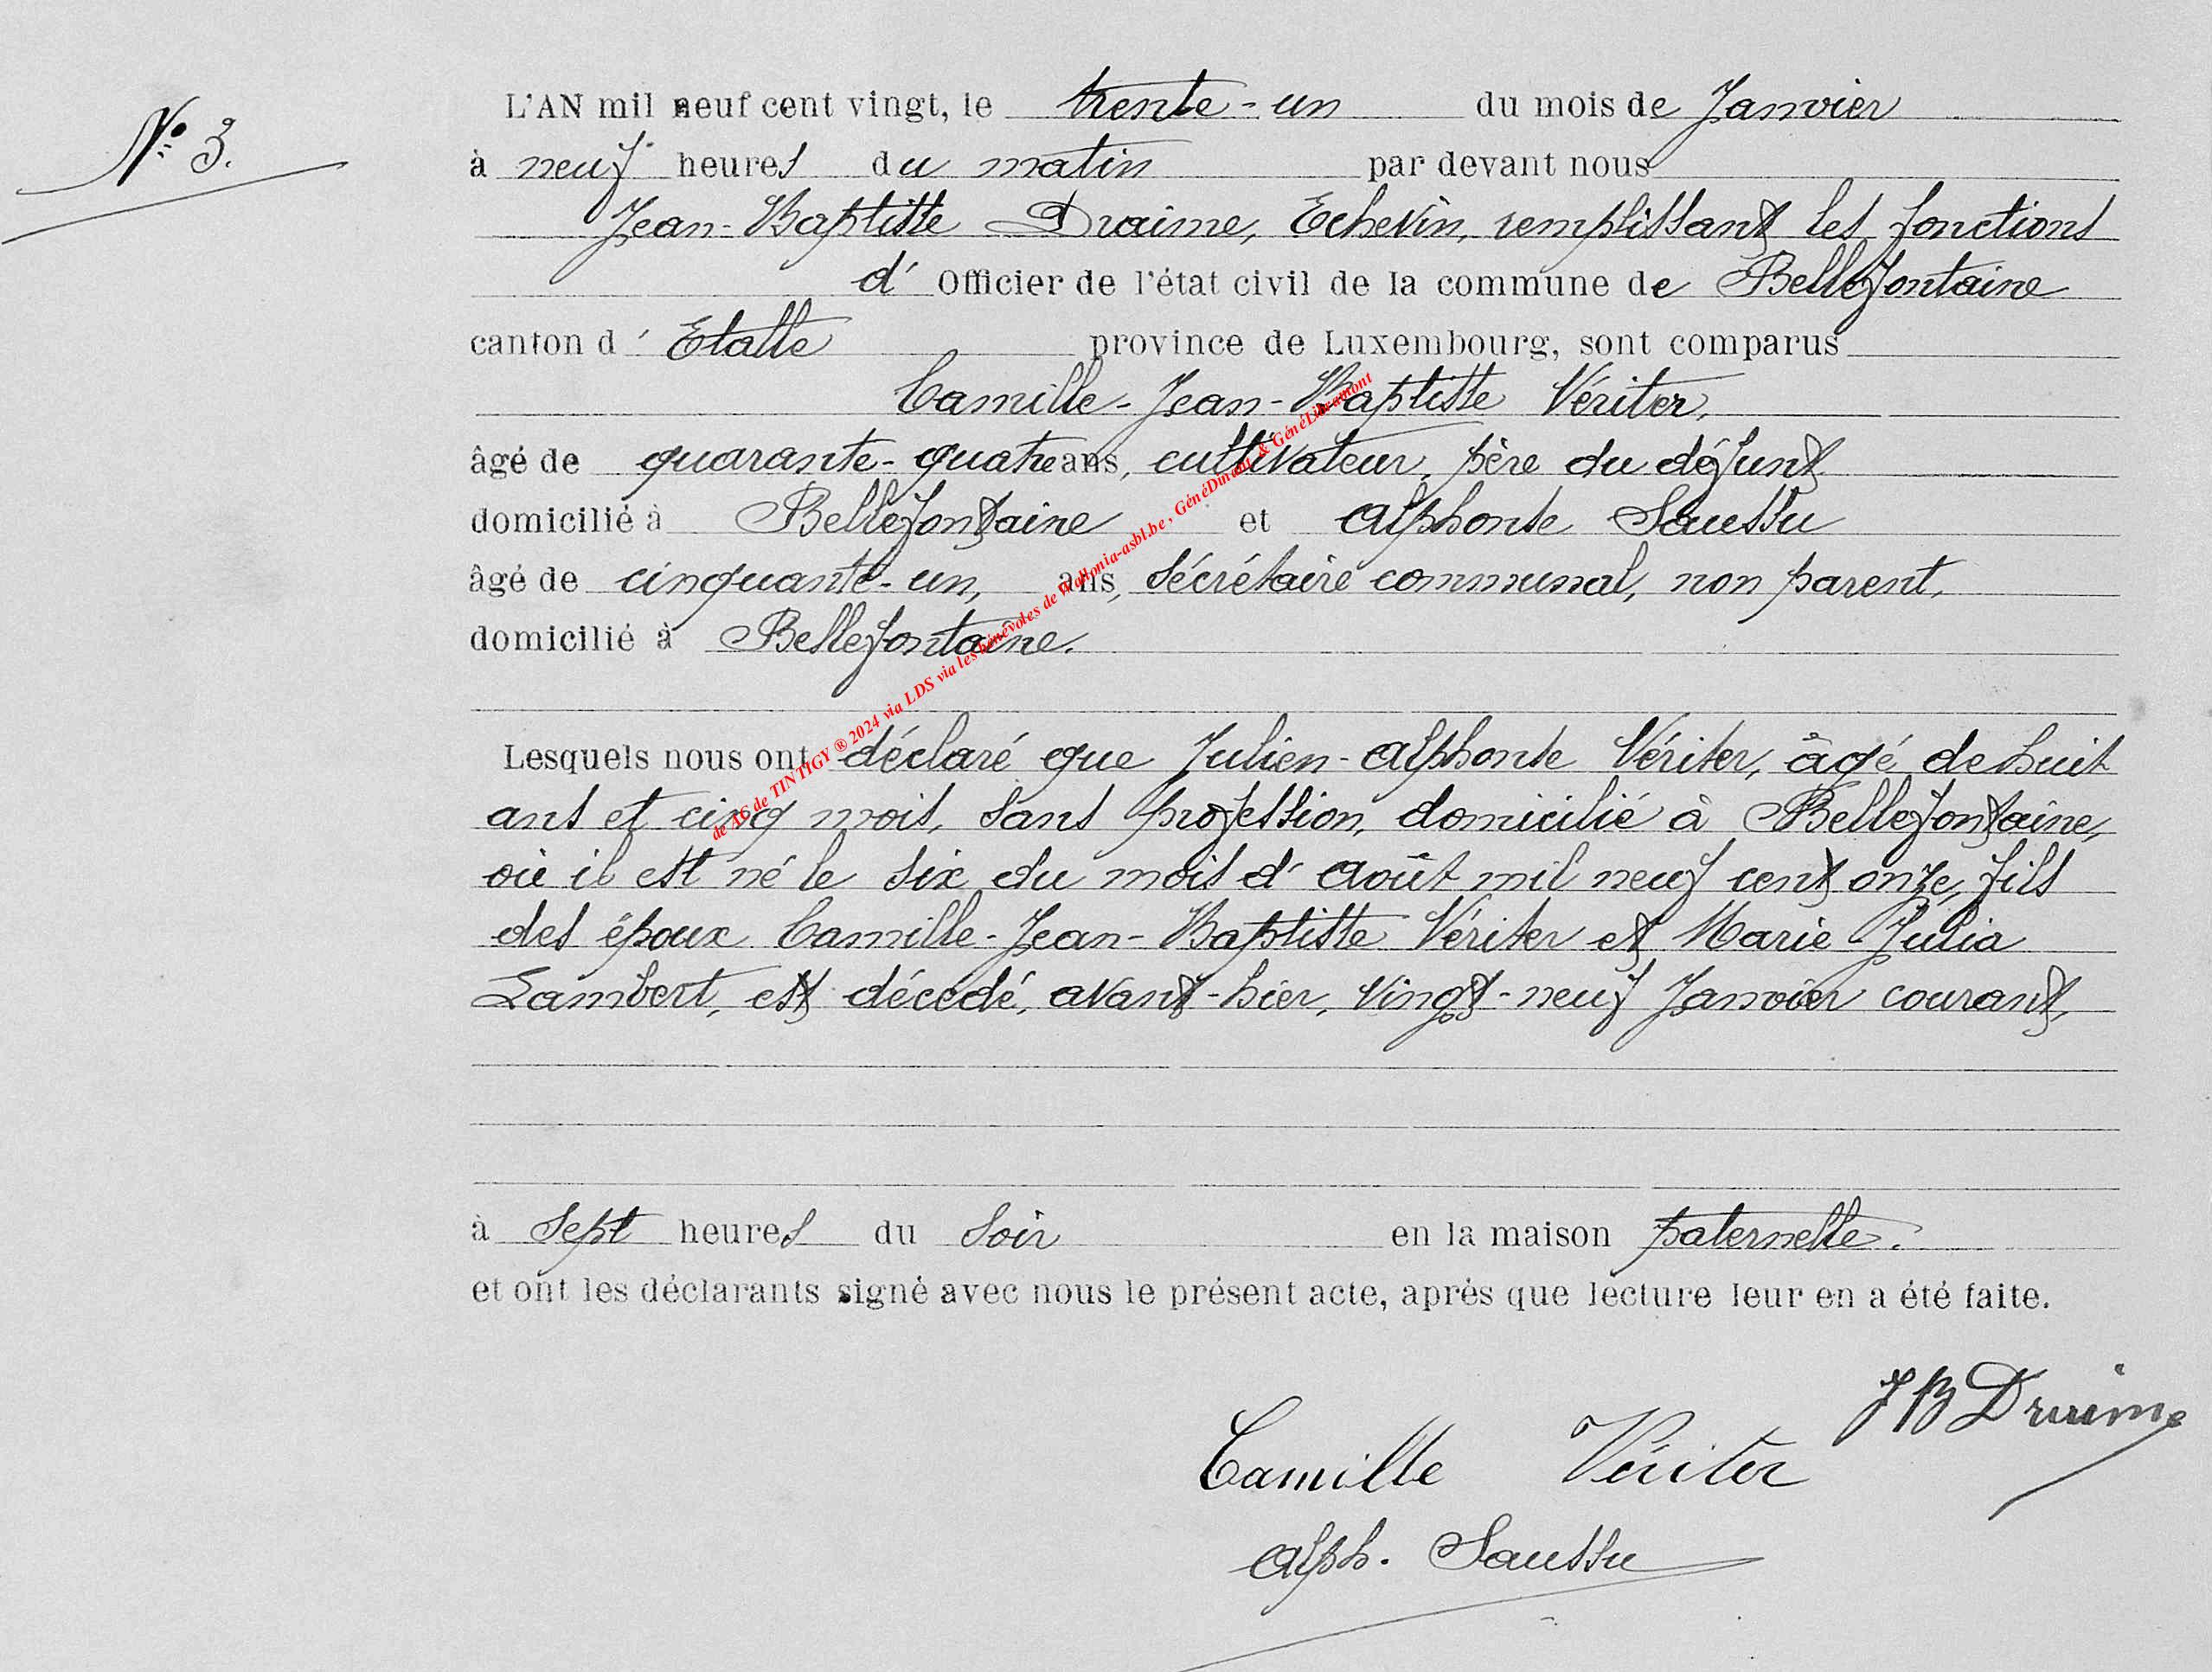 N° 3.
L'AN mil neuf cent vingt, le trente-un du mois de Janvier
à neuf heures du matin par devant nous
Jean-Baptiste Draime, Echevin, remplissant les fonctions
d' Officier de l'état civil de la commune de Bellefontaine
canton d' Etalle province de Luxembourg, sont comparus
Camille-Jean-Baptiste Vériter,
âgé de quarante-quatre ans, cultivateur, père du défunt
domicilié à Bellefontaine et Alphonse Saussu
âgé de cinquante-un, ans, sécrétaire communal, non parent,
domicilié à Bellefontaine.
Lesquels nous ont déclaré que Julien-Alphonse Vériter, âgé de huit
ans et cinq mois, sans profession, domicilié à Bellefontaine,
où il est né le six du mois d'Août mil neuf cent onze, fils
des époux Camille-Jean-Baptiste Vériter et Marie-Julia
Lambert, est décédé, avant-hier, vingt-neuf Janvier courant,
à sept heures du soir en la maison paternelle.
et ont les déclarants signé avec nous le présent acte, après que lecture leur en a été faite.
JB Draime
Camille Vériter
Alph. Saussu
de AC de TINTIGY ® 2024 via LDS via les bénévoles de Wallonia-asbl.be, GénéDinant & GénéLibramont